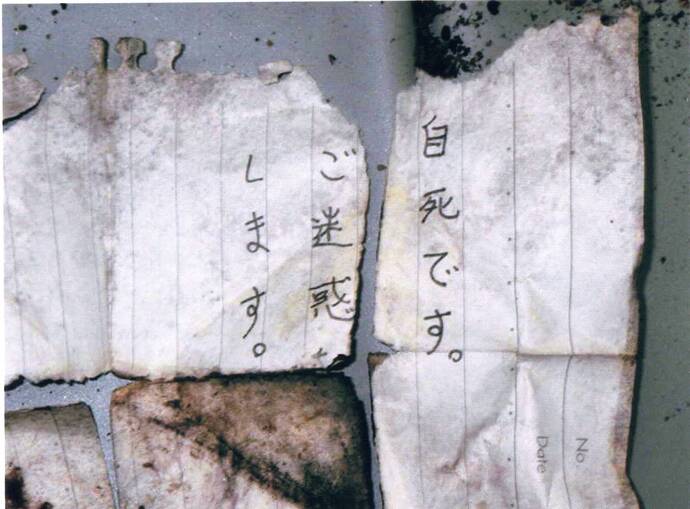 No
Date
自死です。
ご迷惑
します。